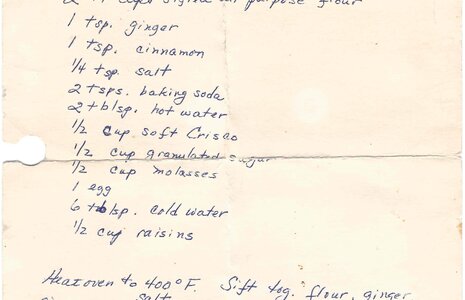 sifted all purpose flour
1 tsp. ginger
1 tsp. cinnamon
1/4 tsp. salt
2 tsps. baking soda
2 tblsp. hot water
1/2 cup soft Crisco
1/2 cup granulated sugar
1/2 cup molasses
1 egg
6 tblsp. cold water
1/2 cup raisins
Heat oven to 400° F. Sift tog. flour, ginger
salt